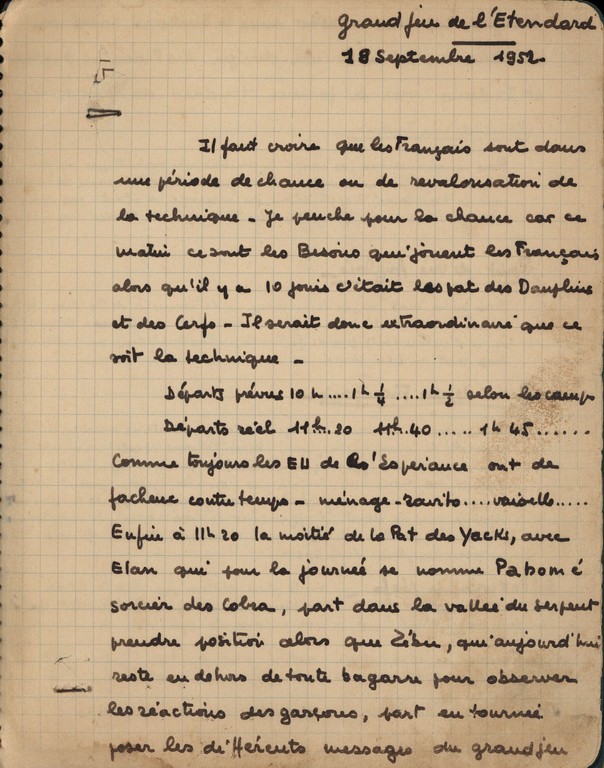 Grand jeu de l'Etendard
18 Septembre 1952
Il faut croire que les Français sont dans
une période de chance ou de revalorisation de
la technique - Je penche pour la chance car ce
matin ce sont les Bisons qui jouent les Français
alors qu'il y a 10 jours c'était les pat des Dauphins
et des Cerfs - Il serait donc extraordinaire que ce
soit la technique -
Départs prévus 10 h....1h 1/4 ....1h 1/2 selon les camps
Départs réel 11h.20 11h.40 ..... 1h 45......
Comme toujours les EU de l'Espérance ont de
facheux contre temps - ménage - ravito....vaiselle.....
Enfin à 11h 20 la moitié de la Pat des Yacks, avec
Elan qui pour la journée se nomme Pabomé
sorcier des Cobra, part dans la vallée du serpent
prendre position alors que Zébu, qui aujourd'hui
reste en dehors de toute bagarre pour observer
les réactions des garçons, part en tournée
poser les différents messages du grand jeu